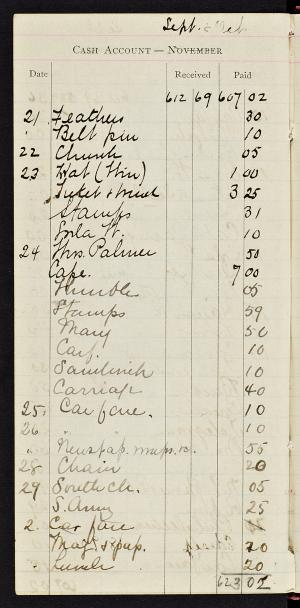 Sept. & Oct.
CASH ACCOUNT — NOVEMBER
Date Received Paid
612 69 607 02
21 Feathers 30
" Belt pin 10
22 Church 05
23 Hat (Win) 1 00
Ticket & meal 3 25
Stamps 31
10
24 Mrs. Palmer 50
Cape. 7 00
Thimble 05
Stamps 59
Mary 50
Carf. 10
Sandwich 10
Carriage 40
25 Car fare. 10
26 " 10
" Newspap. 55
28 Chain 20
29 South Ch. 05
S. Army 25
2. Car fare
Mag. & pap. 20
" Lunch 20
623 02